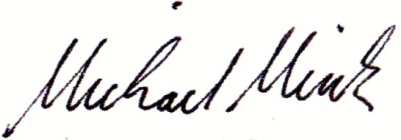 Michael Mink